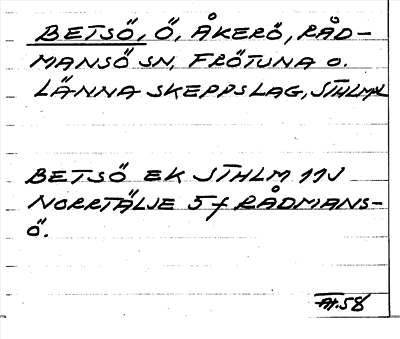 BETSÖ, Ö, ÅKERÖ, RÅD-
MANSÖ SN, FRÖTUNA O.
LÄNNA SKEPPSLAG, STHLM L
BETSÖ EK STHLM 11J
NORRTÄLJE 5f RÅDMANS-
Ö.
58